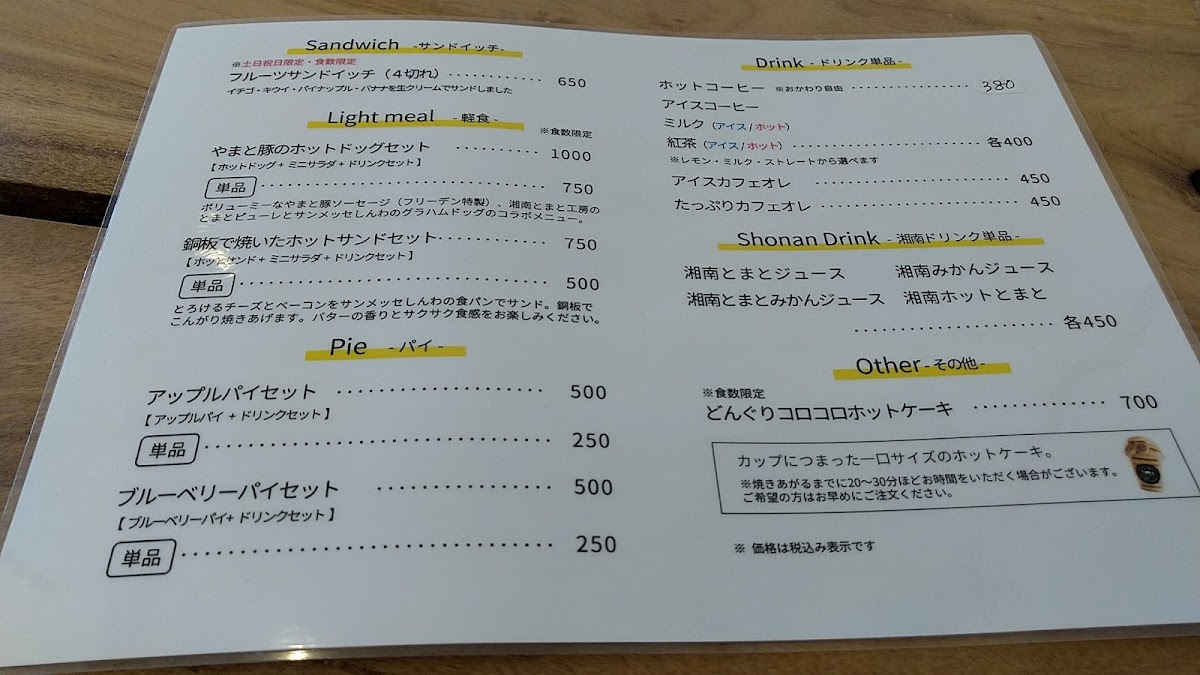 Sandwich -サンドイッチ-
※土日祝日限定・食数限定
フルーツサンドイッチ（４切れ） ············ 650
イチゴ・キウイ・パイナップル・バナナを生クリームでサンドしました
Light meal -軽食-
※食数限定
やまと豚のホットドッグセット ·········· 1000
【 ホットドッグ + ミニサラダ + ドリンクセット 】
単品 ······························· 750
ボリューミーなやまと豚ソーセージ（フリーデン特製）、湘南とまと工房の
とまとピューレとサンメッセしんわのグラハムドッグのコラボメニュー。
銅板で焼いたホットサンドセット ············ 750
【 ホットサンド + ミニサラダ + ドリンクセット 】
単品 ································· 500
とろけるチーズとベーコンをサンメッセしんわの食パンでサンド。銅板で
こんがり焼きあげます。バターの香りとサクサク食感をお楽しみください。
Pie -パイ-
アップルパイセット ···················· 500
【 アップルパイ + ドリンクセット 】
単品 ·································· 250
ブルーベリーパイセット ················· 500
【 ブルーベリーパイ+ ドリンクセット 】
単品 ···································· 250
Drink -ドリンク単品-
ホットコーヒー ※おかわり自由 ················ 380
アイスコーヒー
ミルク（アイス/ホット）
紅茶（アイス/ホット） ························· 各400
※レモン・ミルク・ストレートから選べます
アイスカフェオレ ······················ 450
たっぷりカフェオレ ······················ 450
Shonan Drink -湘南ドリンク単品-
湘南とまとジュース 湘南みかんジュース
湘南とまとみかんジュース 湘南ホットとまと
······················ 各450
Other -その他-
※食数限定
どんぐりコロコロホットケーキ ·············· 700
カップにつまった一口サイズのホットケーキ。
※焼きあがるまでに20〜30分ほどお時間をいただく場合がございます。
ご希望の方はお早めにご注文ください。
※ 価格は税込み表示です